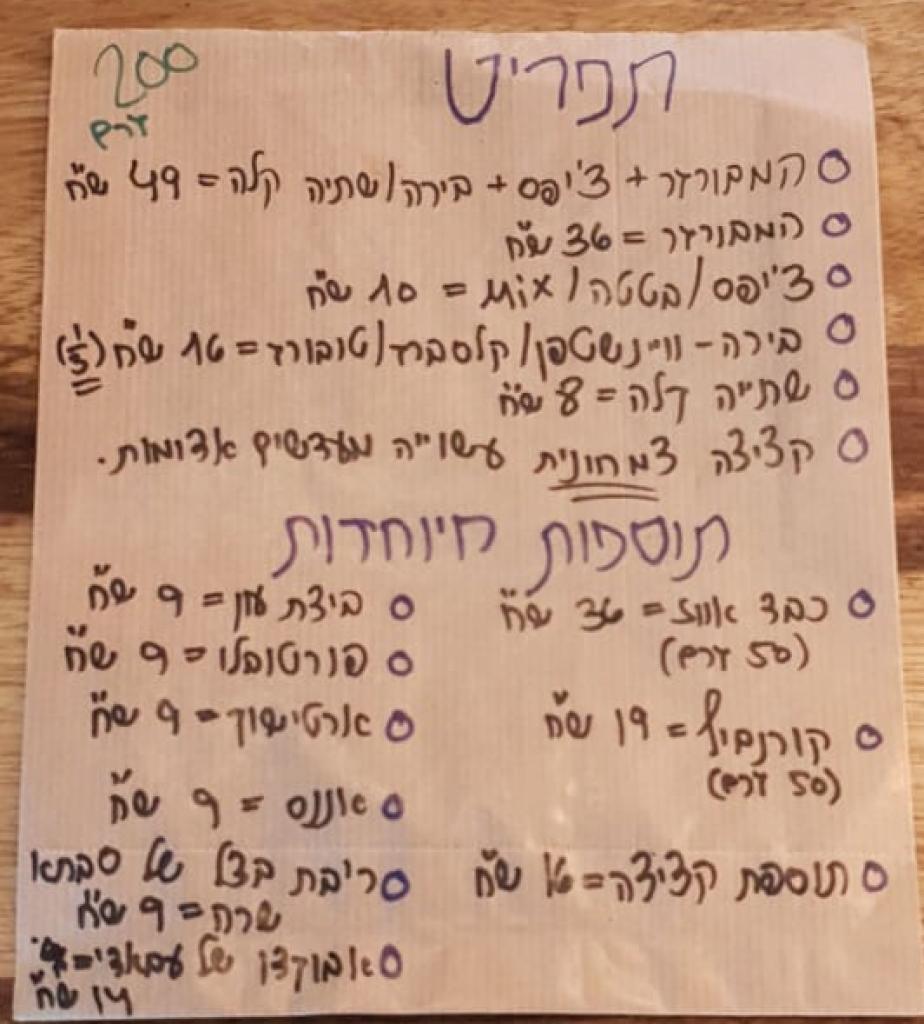 תפריט
200
גרם
המבורגר + צ'יפס + בירה/שתיה קלה = 49 ש"ח
המבורגר = 36 ש"ח
צ'יפס/בטטה/מיX = 10 ש"ח
בירה - ויינשטפן/קלסברג/טובורג = 16 ש"ח (1/3)
שתייה קלה = 8 ש"ח
קציצה צמחונית עשוייה מעדשים אדומות.
תוספות מיוחדות
כבד אווז = 36 ש"ח
(50 גרם)
קורנביף = 19 ש"ח
(50 גרם)
תוספת קציצה = 16 ש"ח
ביצת עין = 9 ש"ח
פורטובלו = 9 ש"ח
ארטישוק = 9 ש"ח
אננס = 9 ש"ח
ריבת בצל של סבתא
שרה = 9 ש"ח
אבוקדו של =
14 ש"ח